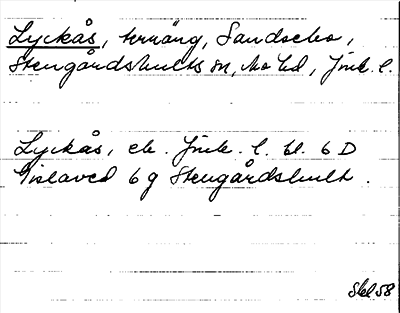 Lyckås, terräng, Sandsebo,
Stengårdshults sn, Mo hd, Jönk. l.
Lyckås, ek. Jönk. l. bl. 6 D
Gislaved 6 g Stengårdshult.
Skl 58